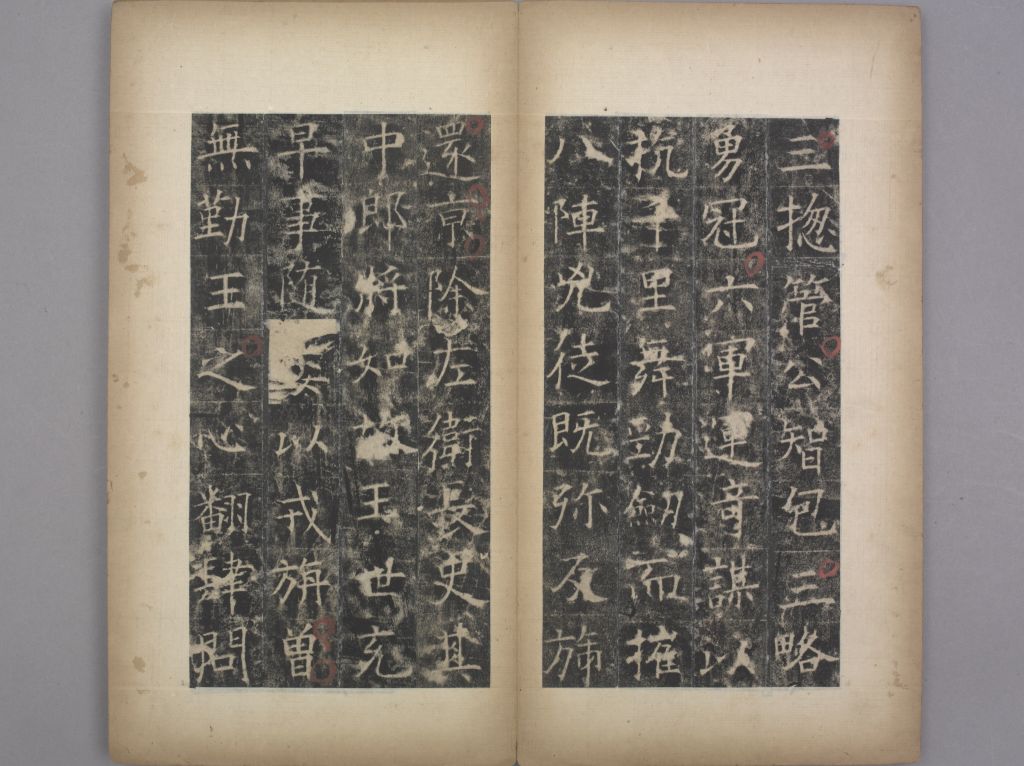 三揔管公智包三略
勇冠六軍運竒謀以
抗千里舞勁劒而摧
八陣兇徒既弥反旆
還京除左衛長史其
中郎將如故王世充
早事随委以戎旃曾
無勤王之心翻肆問